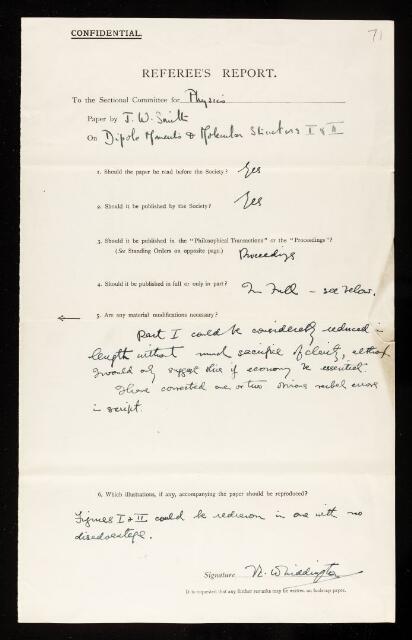 CONFIDENTIAL.
71
REFEREE'S REPORT.
To the Sectional Committee for Physics
Paper by J. W. Smith
On Dipole Moments & Molecular Structure I & II
1. Should the paper be read before the Society? Yes
2. Should it be published by the Society? Yes
3. Should it be published in the "Philosophical Transactions" or the "Proceedings"?
(See Standing Orders on opposite page.) Proceedings
4. Should it be published in full or only in part? In Full – see below.
5. Are any material modifications necessary?
Part I could be considerably reduced in
length without much sacrifice of clarity, although
I would only suggest this if economy be essential.
I have corrected one or two obvious verbal errors
in script.
6. Which illustrations, if any, accompanying the paper should be reproduced?
Figures I & II could be redrawn in one with no
disadvantage.
Signature R. Whiddington
It is requested that any further remarks may be written on foolscap paper.